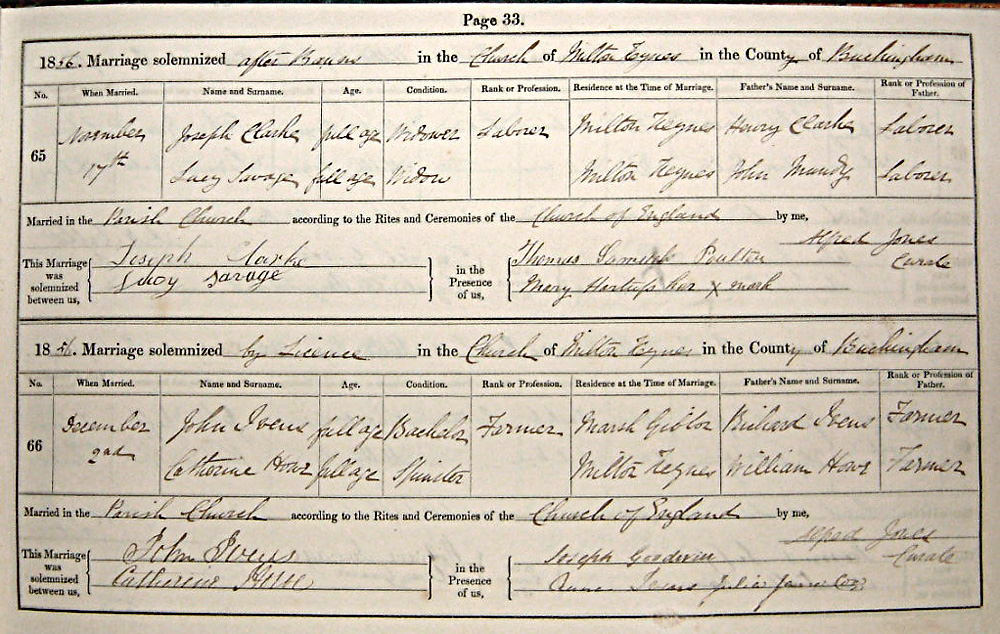 Page 33.
1856. Marriage solemnized after Banns in the Church of Milton Keynes in the County of Buckingham
No. When Married. Name and Surname. Age. Condition. Rank or Profession. Residence at the Time of Marriage. Father's Name and Surname. Rank or Profession of Father.
65 November 17th Joseph Clarke full age Widower Laborer Milton Keynes Henry Clarke Laborer
Lucy Savage full age Widow Milton Keynes John Mundy Laborer
Married in the Parish Church according to the Rites and Ceremonies of the Church of England by me,
Alfred Jones Curate
This Marriage was solemnized between us, Joseph Clarke Lucy Savage in the Presence of us, Thomas Poulton
Mary her X mark
1856. Marriage solemnized by Licence in the Church of Milton Keynes in the County of Buckingham
No. When Married. Name and Surname. Age. Condition. Rank or Profession. Residence at the Time of Marriage. Father's Name and Surname. Rank or Profession of Father.
66 December 2nd John Ivens full age Bachelor Farmer Marsh Gibbon Richard Ivens Farmer
Catherine Howe full age Spinster Milton Keynes William Howe Farmer
Married in the Parish Church according to the Rites and Ceremonies of the Church of England by me,
Alfred Jones Curate
This Marriage was solemnized between us, John Ivens Catherine Howe in the Presence of us, Joseph Goodwin
Ivens Julia Jane Cox